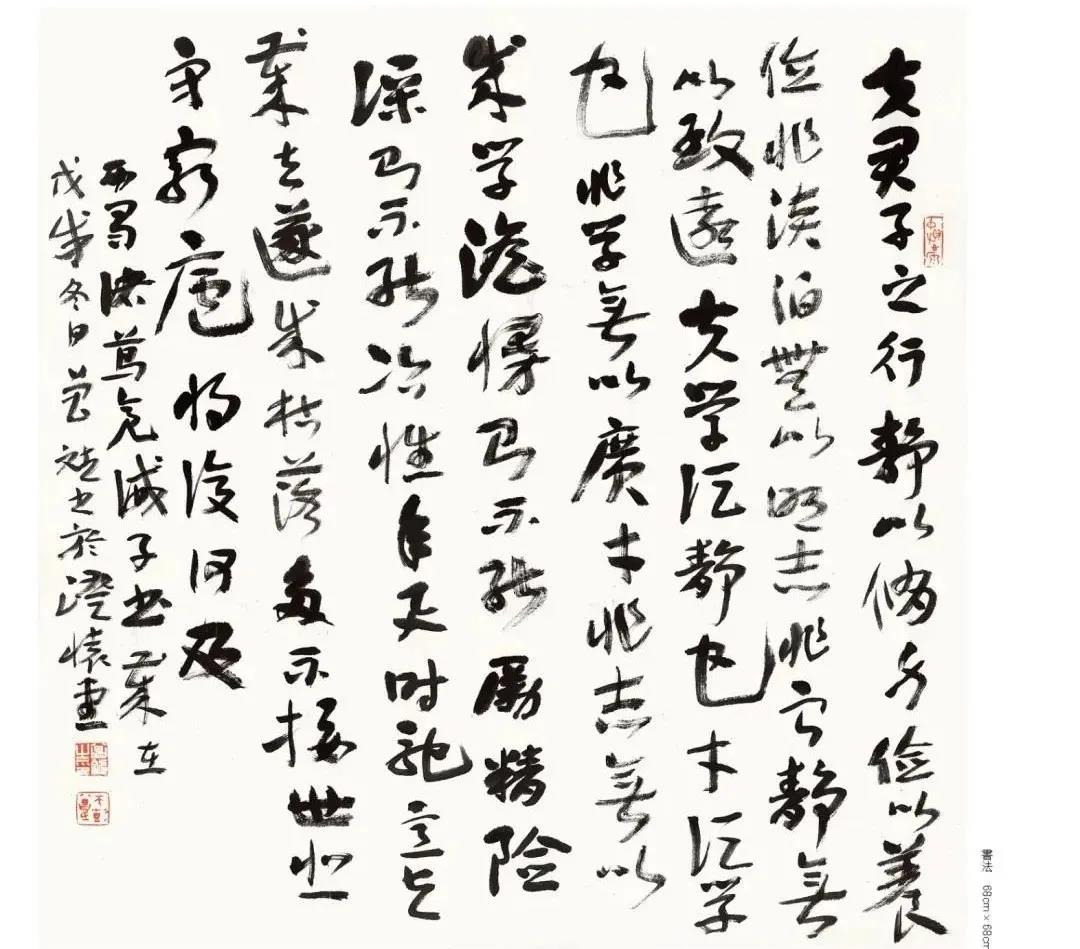 夫君子之行静以脩身俭以養
德非淡泊無以明志非宁静無
以致遠夫学须静也才须学
也非学無以廣才非志無以
成学滛慢則不能励精险
躁則不能冶性年与时驰意与
歲去遂成枯落多不接世悲
守穷庐将復何及
西蜀诸葛亮诫子书歲在
戊戌冬日书於澄懷
書法 68cm×68cm